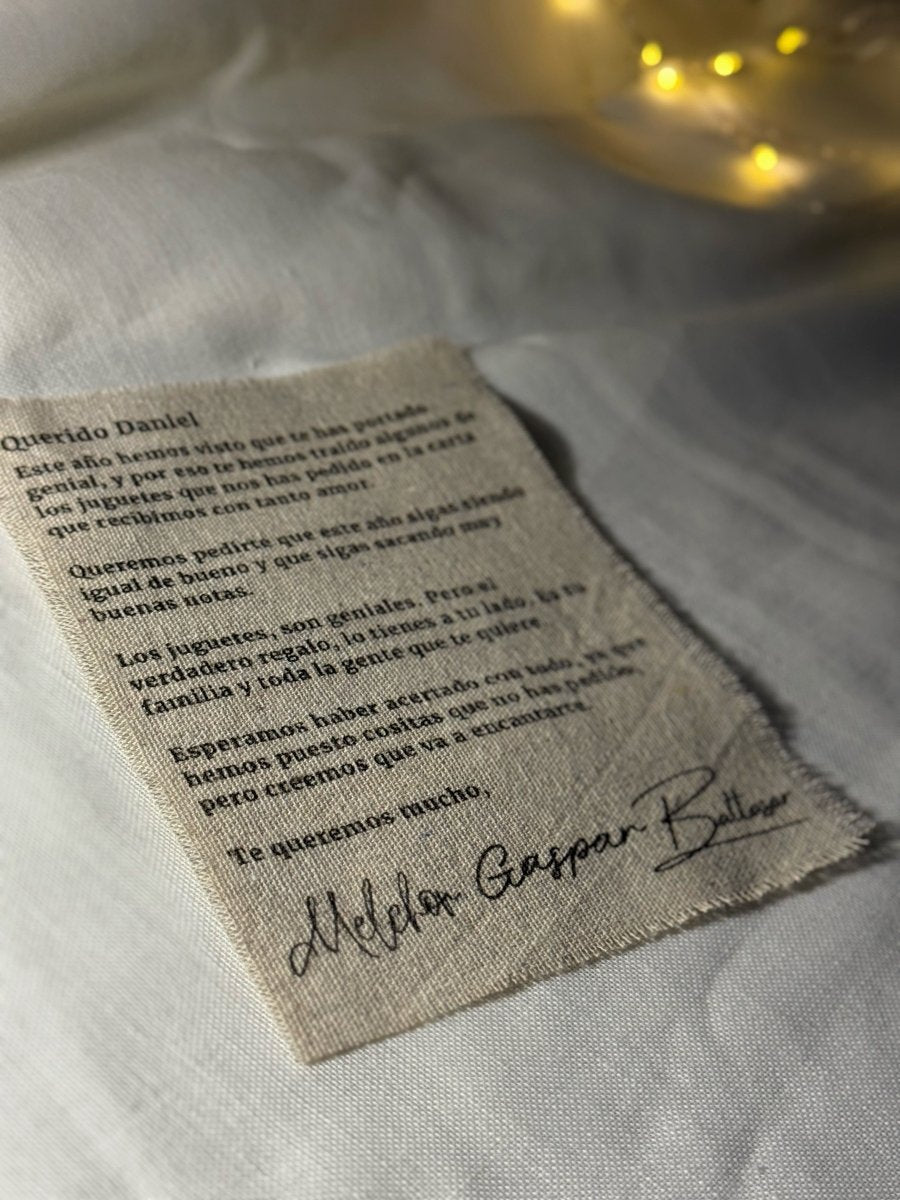 Querido Daniel
Este año hemos visto que te has portado
genial, y por eso te hemos traído algunos de
los juguetes que nos has pedido en la carta
que recibimos con tanto amor.
Queremos pedirte que este año sigas siendo
igual de bueno y que sigas sacando muy
buenas notas.
Los juguetes, son geniales. Pero el
verdadero regalo, lo tienes a tu lado. Es tu
familia y toda la gente que te quiere
Esperamos haber acertado con todo, ya que
hemos puesto cositas que no has pedido,
pero creemos que va a encantarte.
Te queremos mucho,
Melchor Gaspar Baltasar